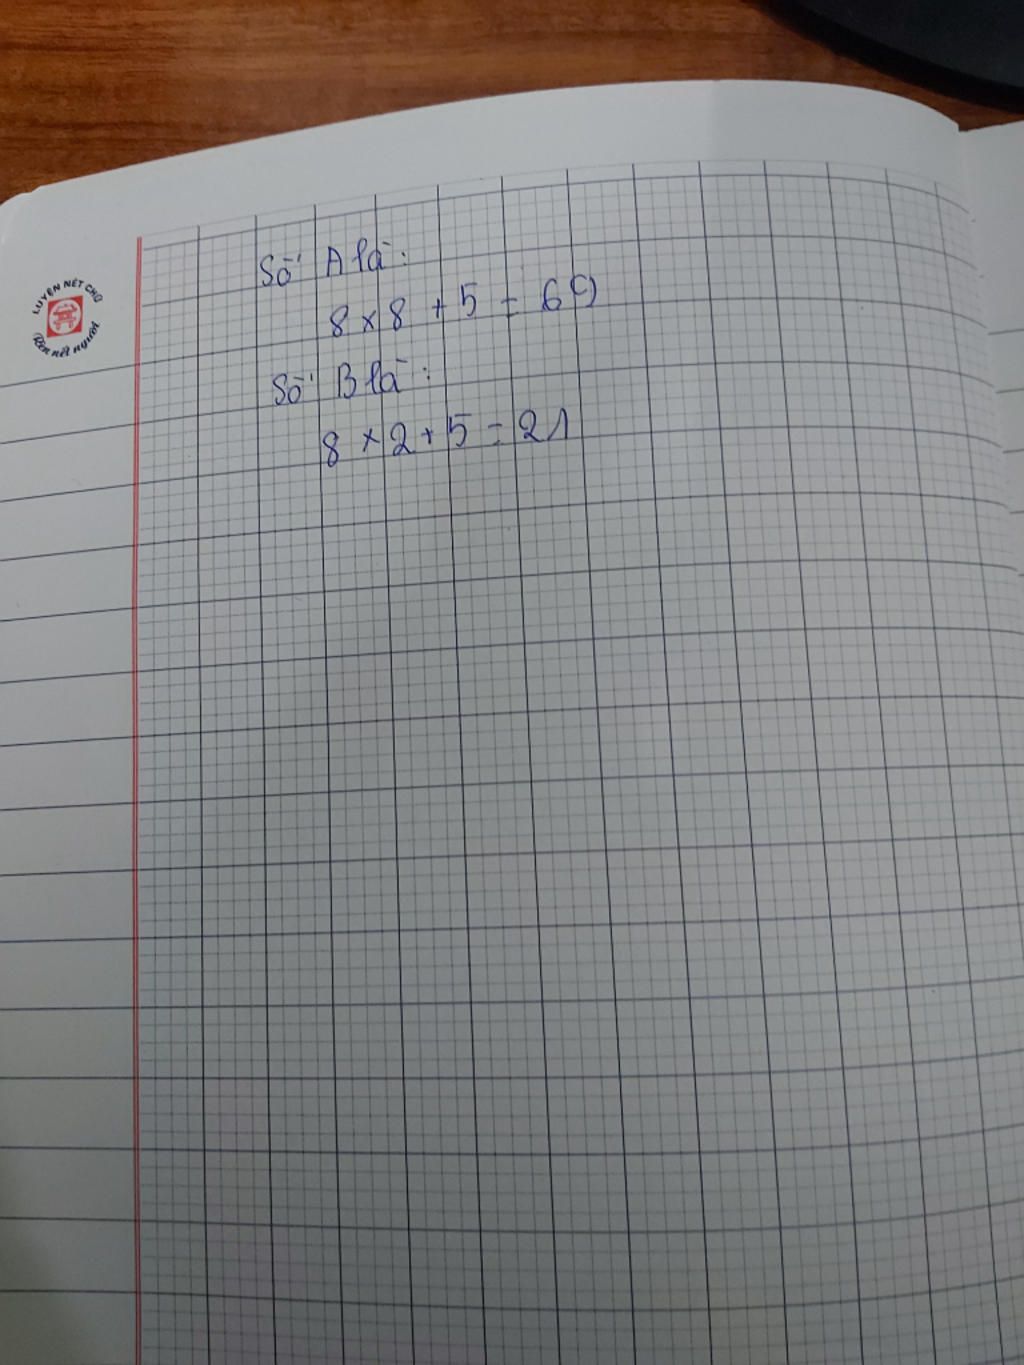 LUYỆN NÉT CHỮ
Rèn nết người
Số A là:
8 x 8 + 5 = 69
Số B là:
8 x 2 + 5 = 21